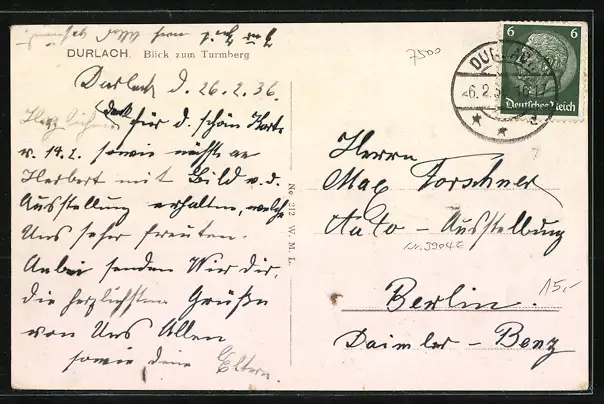 DURLACH. Blick zum Turmberg
Durlach d. 26.2.36.
Herzlichen Dank für d. schön Karte
v. 14.2. sowie nächste an
Herbert mit Bild v. d.
Ausstellung erhalten, welche
Uns seher freuten.
Anbei senden Wir dir,
die herzlichsten Grüße
von Uns Allen
sowie deine Eltern.
No 212 W. M. L.
7500
6 6
Deutsches Reich
Herrn
Max Forschner
Auto - Ausstellung
Berlin.
15,-
Daimler - Benz